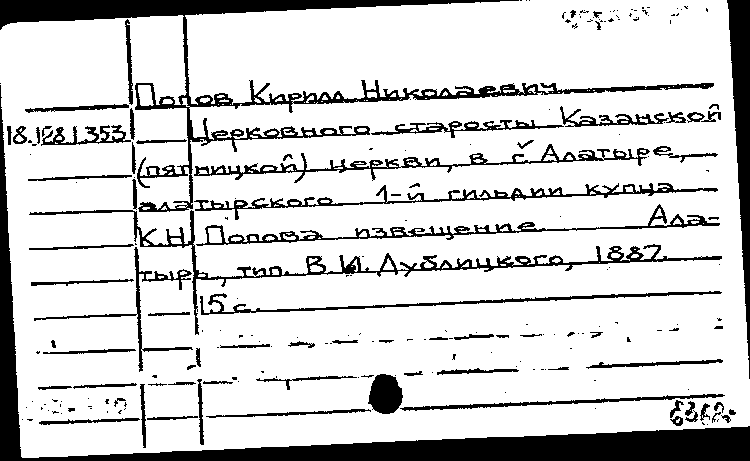 Попов, Кирилл Николаевич
18.128.1.353 Церковного старосты Казанской
(пятницкой) церкви, в г. Алатыре,
алатырского 1-й гильдии купца
К.Н. Попова извещение. Ала-
тырь, тип. В.И. Дублицкого, 1887.
15 с.